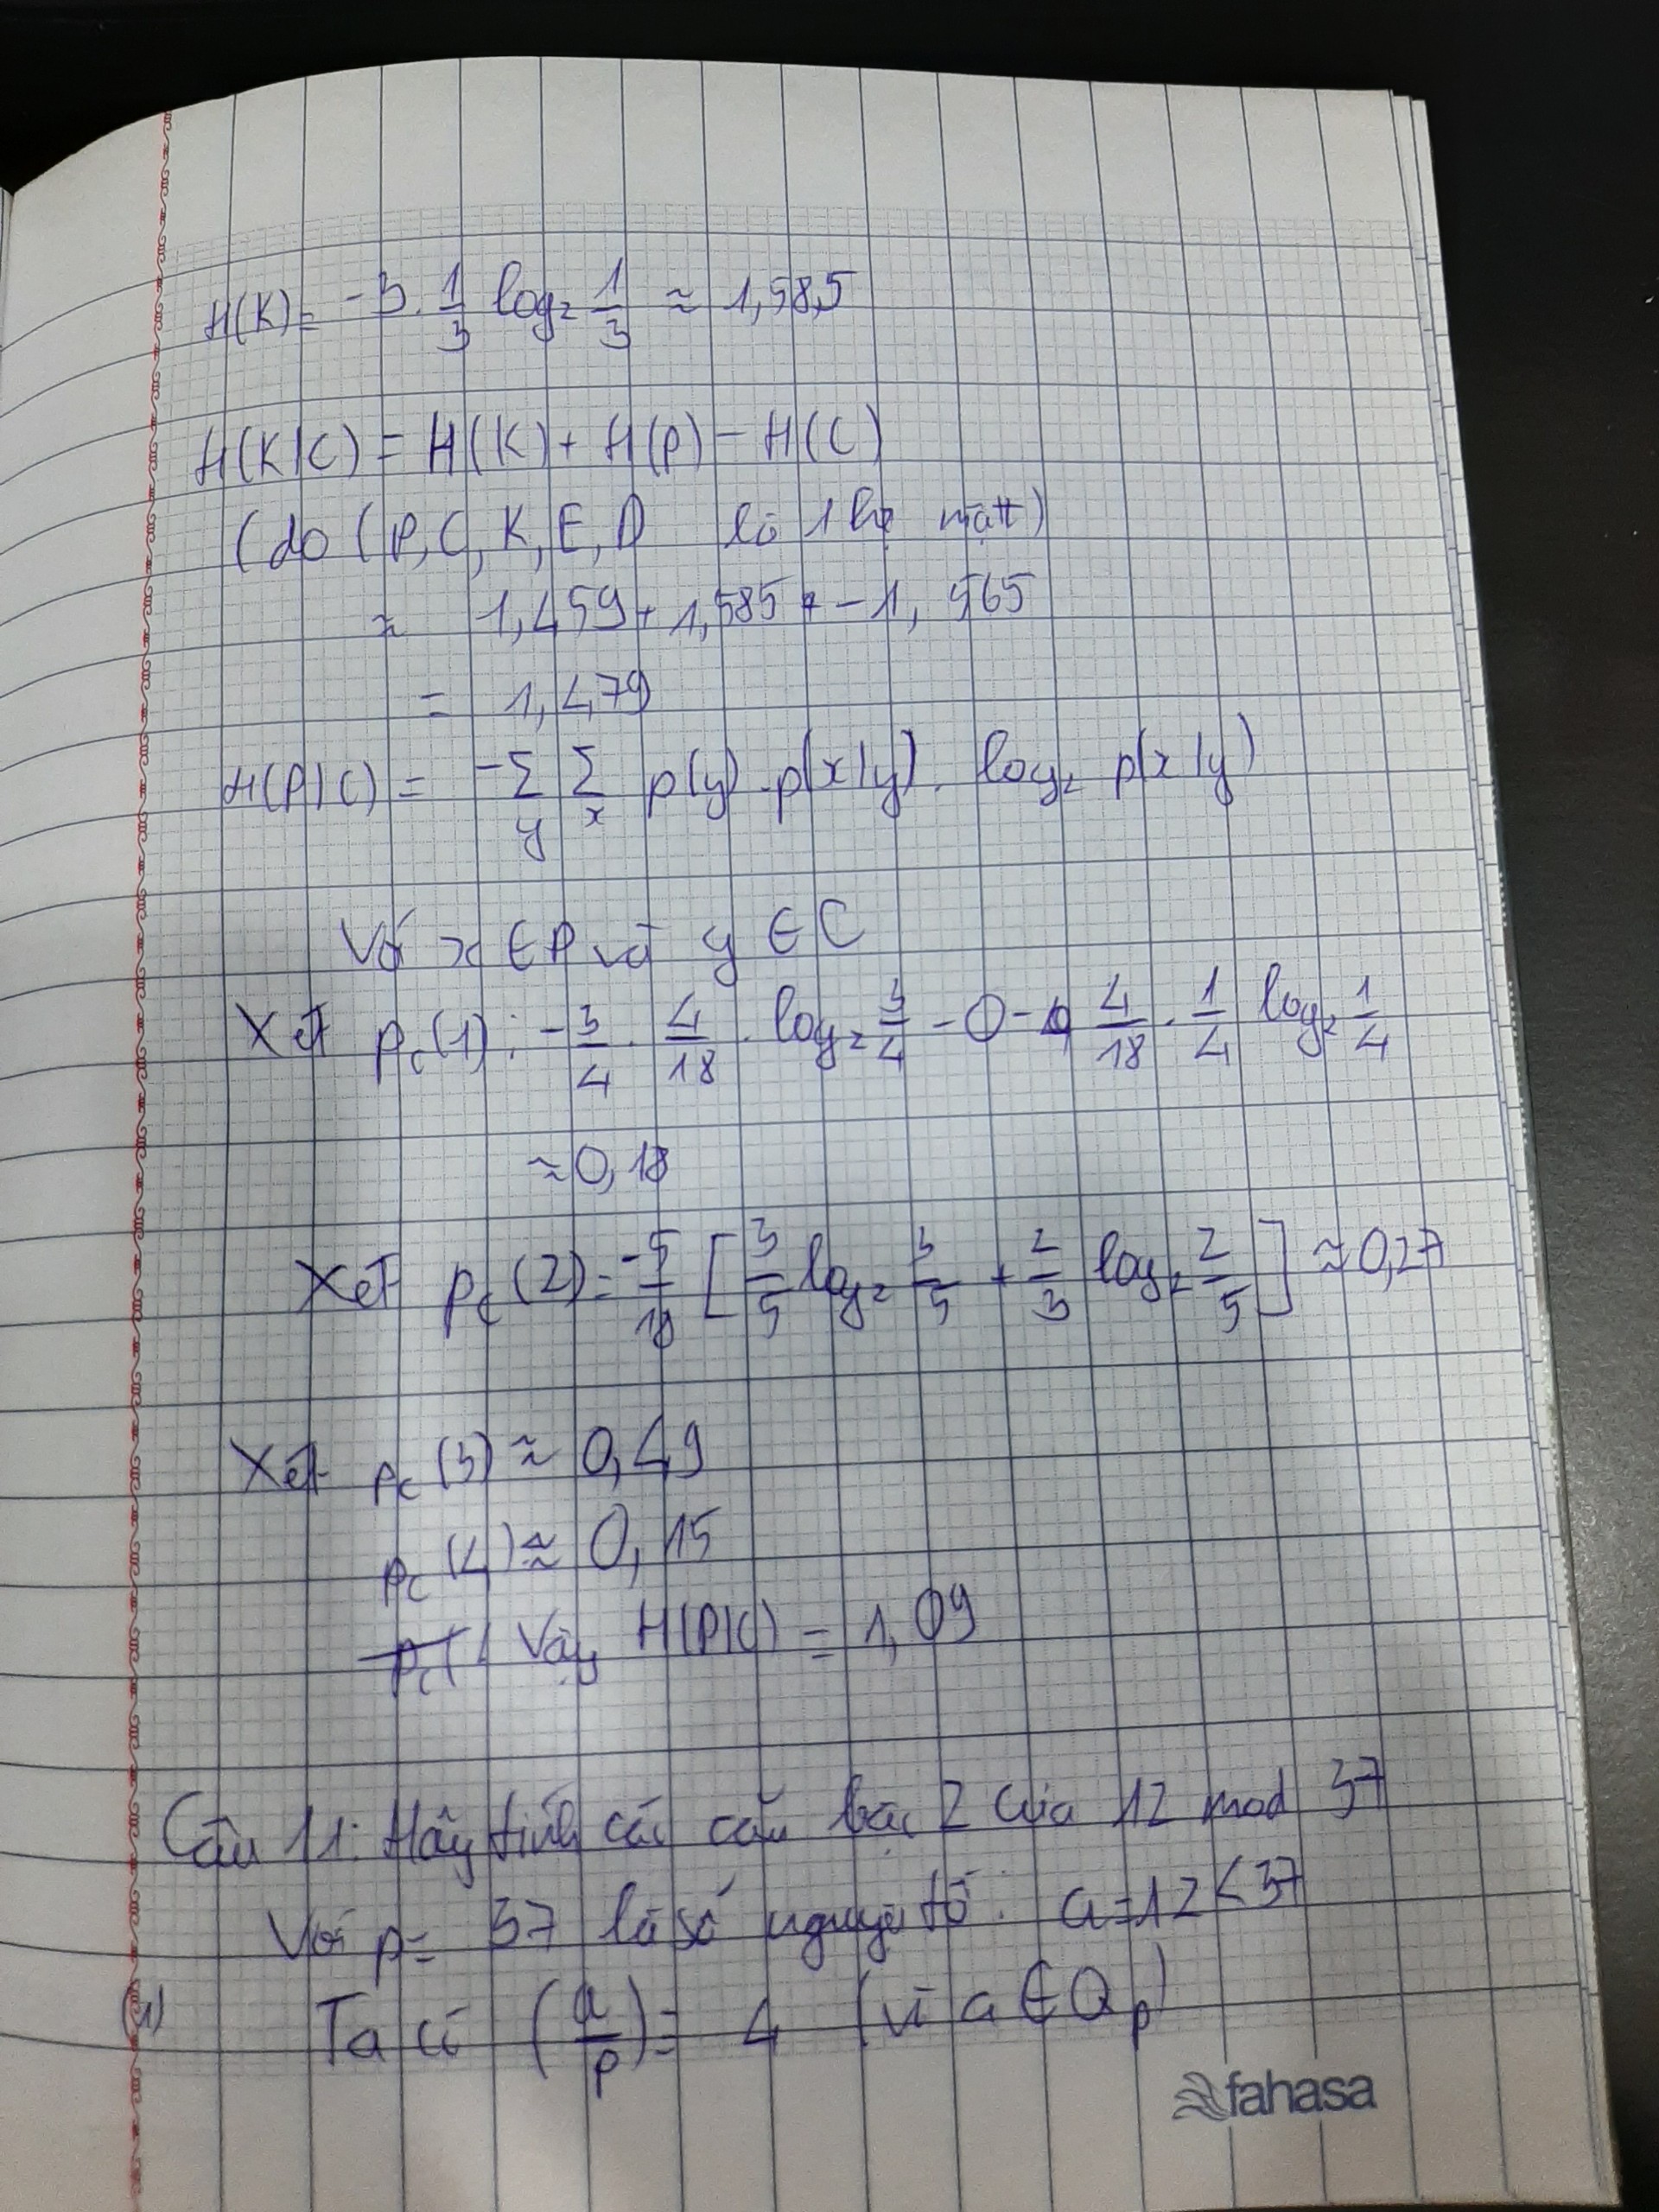 H(K) = -3. 1/3 log₂ 1/3 ≈ 1,585
H(K|C) = H(K) + H(P) - H(C)
(do (P, C, K, E, D là 1 hệ mật)
≈ 1,459 + 1,585 - 1,565
= 1,479
H(P|C) = -Σ_y Σ_x p(y).p(x|y). log₂ p(x|y)
Với x ∈ P và y ∈ C
Xét p_c(1): -3/4 . 4/18 . log₂ 3/4 - 0 - 4/18 . 1/4 log₂ 1/4
≈ 0,18
Xét p_c(2) = -5/18 [3/5 log₂ 3/5 + 2/3 log₂ 2/5] ≈ 0,27
Xét p_c(3) ≈ 0,49
p_c(4) ≈ 0,15
Vậy H(P|C) = 1,09
Câu 11: Hãy tính các căn bậc 2 của 12 mod 37
Với p = 37 là số nguyên tố. a = 12 < 37
(1) Ta có (a/p) = 1 (vì a ∈ Q_p)
fahasa